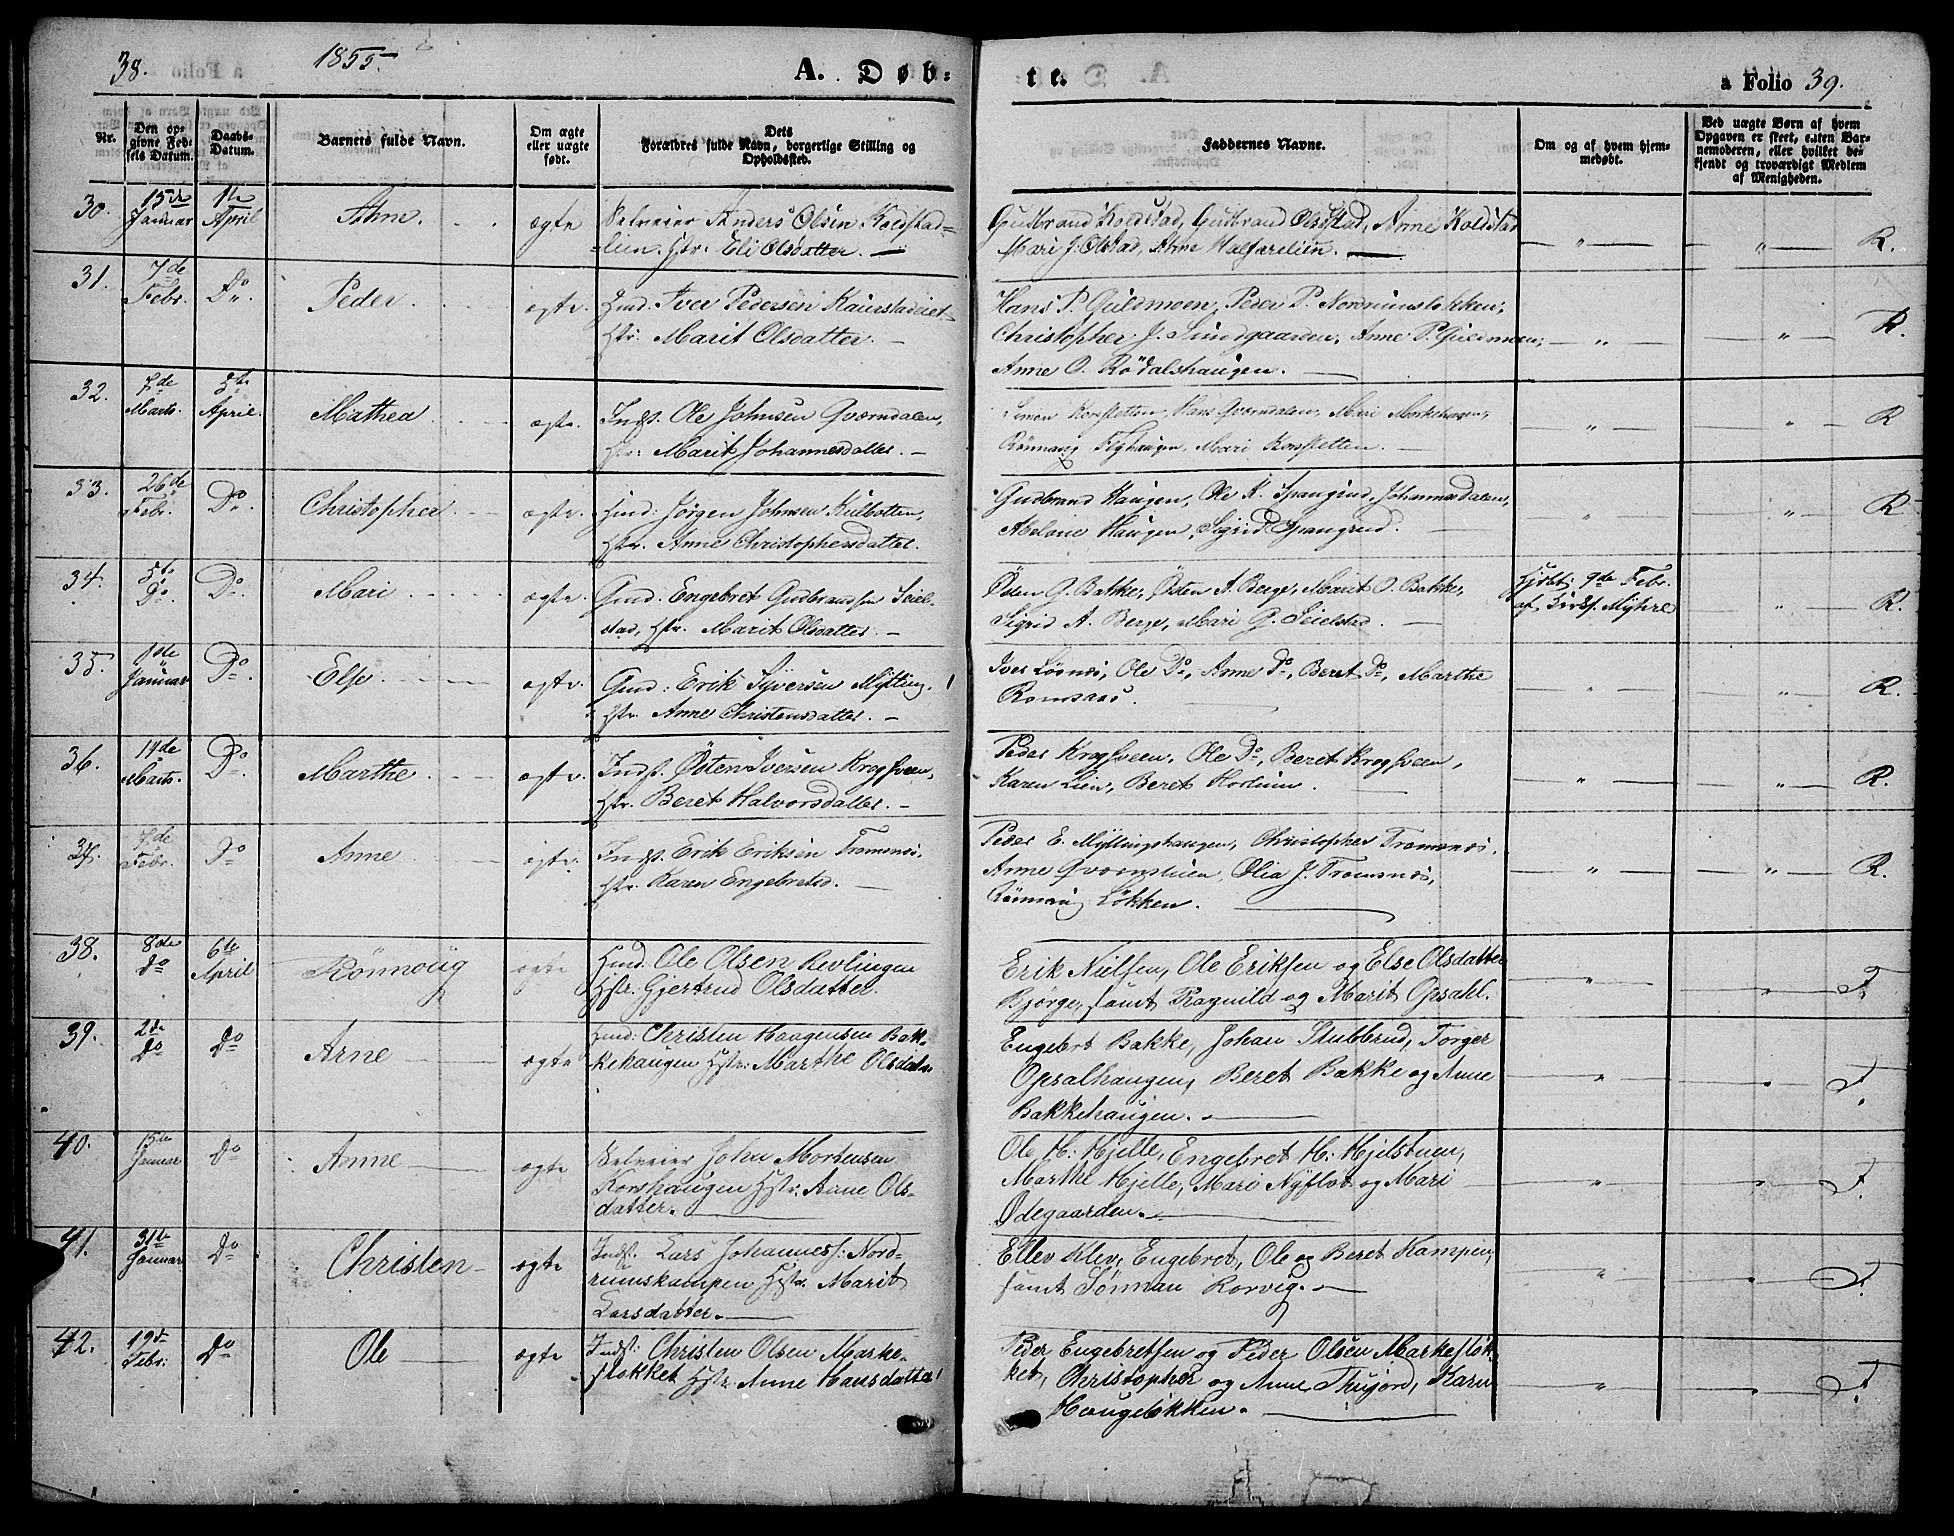 38.
1855
A. Døb-
te.
a Folio 39.
Nr.
Den op-
givne Fød-
sels Datum.
Daabs-
Datum.
Barnets fulde Navn.
Om ægte
eller uægte
født.
Dets
Forældres fulde Navn, borgerlige Stilling og
Opholdssted.
Faddernes Navne.
Om og af hvem hjem-
medøbt.
Ved uægte Børn af hvem
Opgaven er skeet, enten Bar-
nemoderen, eller hvilket be-
kjendt og troværdigt Medlem
af Menigheden.
30.
15de
Januar
1ste
April
ægte
Selveier Anders Olsen Koldstad-
lien. Hstr. Eli Olsdatter.
Gudbrand Koldstad, Gudbrand Olsstad, Anne Koldstad
Mari J. Olstad,
R.
31.
7de
Febr.
Do.
Peder
ægte.
Hmd. Iver Pedersen
Hstr. Marit Olsdatter.
Hans P. Guldmoen, Peder P. Nordrumsløkken,
Christopher J. Sundgaarden, Anne P. Guldmoen,
Anne O. Rödalshaugen.
R.
32.
7de
Marts.
5te
April.
Mathea
ægte.
Inds. Ole Johnsen Qværndalen,
Hstr: Marit Johannesdatter.
Simen Korsletten, Hans Qværndalen, Mari
Rønnaug Mari Korsletten.
R
33.
26de
Febr.
Do.
Christopher
ægte.
Hmd: Jørgen Johnsen
Hstr. Anne Christophersdatter.
Gudbrand Haugen, Ole K. Spangrud, Johannes dalen,
Haugen, Sigrid Spangrud.
R
34.
5te
Do.
Do.
Mari
ægte.
Gmd. Engebret Gudbrandsen Seiel-
stad, Hstr. Marit Olsdatter.
Østen G. Bakke, Østen A. Berge, Marit O. Bakke,
Sigrid A. Berge, Mari G. Seielstad.
Hjdbt. 9de Febr.
af Kirks. Myhre
R.
35.
1ste
Januar
Do.
Else
ægte.
Gmd: Erik Syversen Mytting.
Hstr. Anne Christensdatter.
Iver Lønnes, Ole Do, Anne Do, Beret Do, Marthe
Romsaas.
R.
36.
14de
Marts.
Do.
Marthe
ægte.
Inds. Østen Iversen Krogsveen,
Hstr. Beret Halvorsdatter.
Peder Krogsveen, Ole Do, Beret Krogsveen,
Karen Lien, Beret
R.
37.
7de
Febr.
Do
Anne
ægte.
Inds. Erik Eriksen Tromsnes.
Hstr. Karen Engebretsd.
Peder E. Myttingshaugen, Christopher Tromsnes.
Anne Qværnstuen, Olia J. Tromsnes,
Rønnaug Løkken.
R.
38.
8de
Do
6te
April
Rønnoug
ægte
Hmd. Ole Olsen Bevlingen
Hstr: Gjertrud Olsdatter.
Erik Nielsen, Ole Eriksen og Else Olsdatter
Bjørge, samt Ragnild og Marit Opsahl.
F.
39.
2de
Do
Do
Arne
ægte
Hmd: Christen Haagensen Bak-
kehaugen Hstr: Marthe Olsdatr.
Engebrt Bakke, Johan Stubbrud, Torger
Opsalhaugen, Beret Bakke og Anne
Bakkehaugen.
F.
40.
15de
Januar
Do
Anne
ægte
Selveier John Mortensen
Korshaugen Hstr: Anne Ols-
datter.
Ole H: Hjelle, Engebret H: Hjelstuen,
Marthe Hjelle, Mari Nyfløt og Mari
Ødegaarden.
F.
41.
31te
Januar
Do
Christen
ægte
Inds: Lars Johanness: Nord-
rumskampen Hstr. Marit
Larsdatter.
Ellev Klev, Engebret, Ole og Beret Kampen,
samt Sönnau Korvig.
F.
42.
19de
Febr:
Do
Ole
ægte
Inds: Christen Olsen Marke-
stokket Hstr. Anne Hansdatter
Peder Engebretsen og Peder Olsen Markestøk-
ket, Christopher og Anne Karen
Haugeløkken.
F.